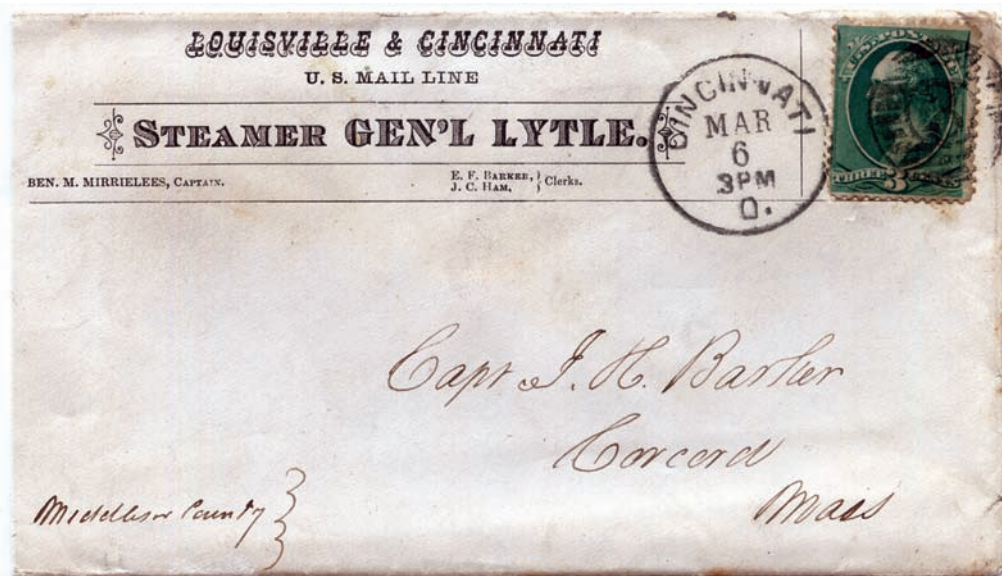 LOUISVILLE & CINCINNATI
U. S. MAIL LINE
STEAMER GEN'L LYTLE.
BEN. M. MIRRIELEES, CAPTAIN.
E. F. BARKER, } Clerks.
J. C. HAM,
CINCINNATI
MAR
6
3PM
O.
U.S. POST
THREE 3 CENTS
Capt J. H. Barker
Concord
Mass
Middlesex County }